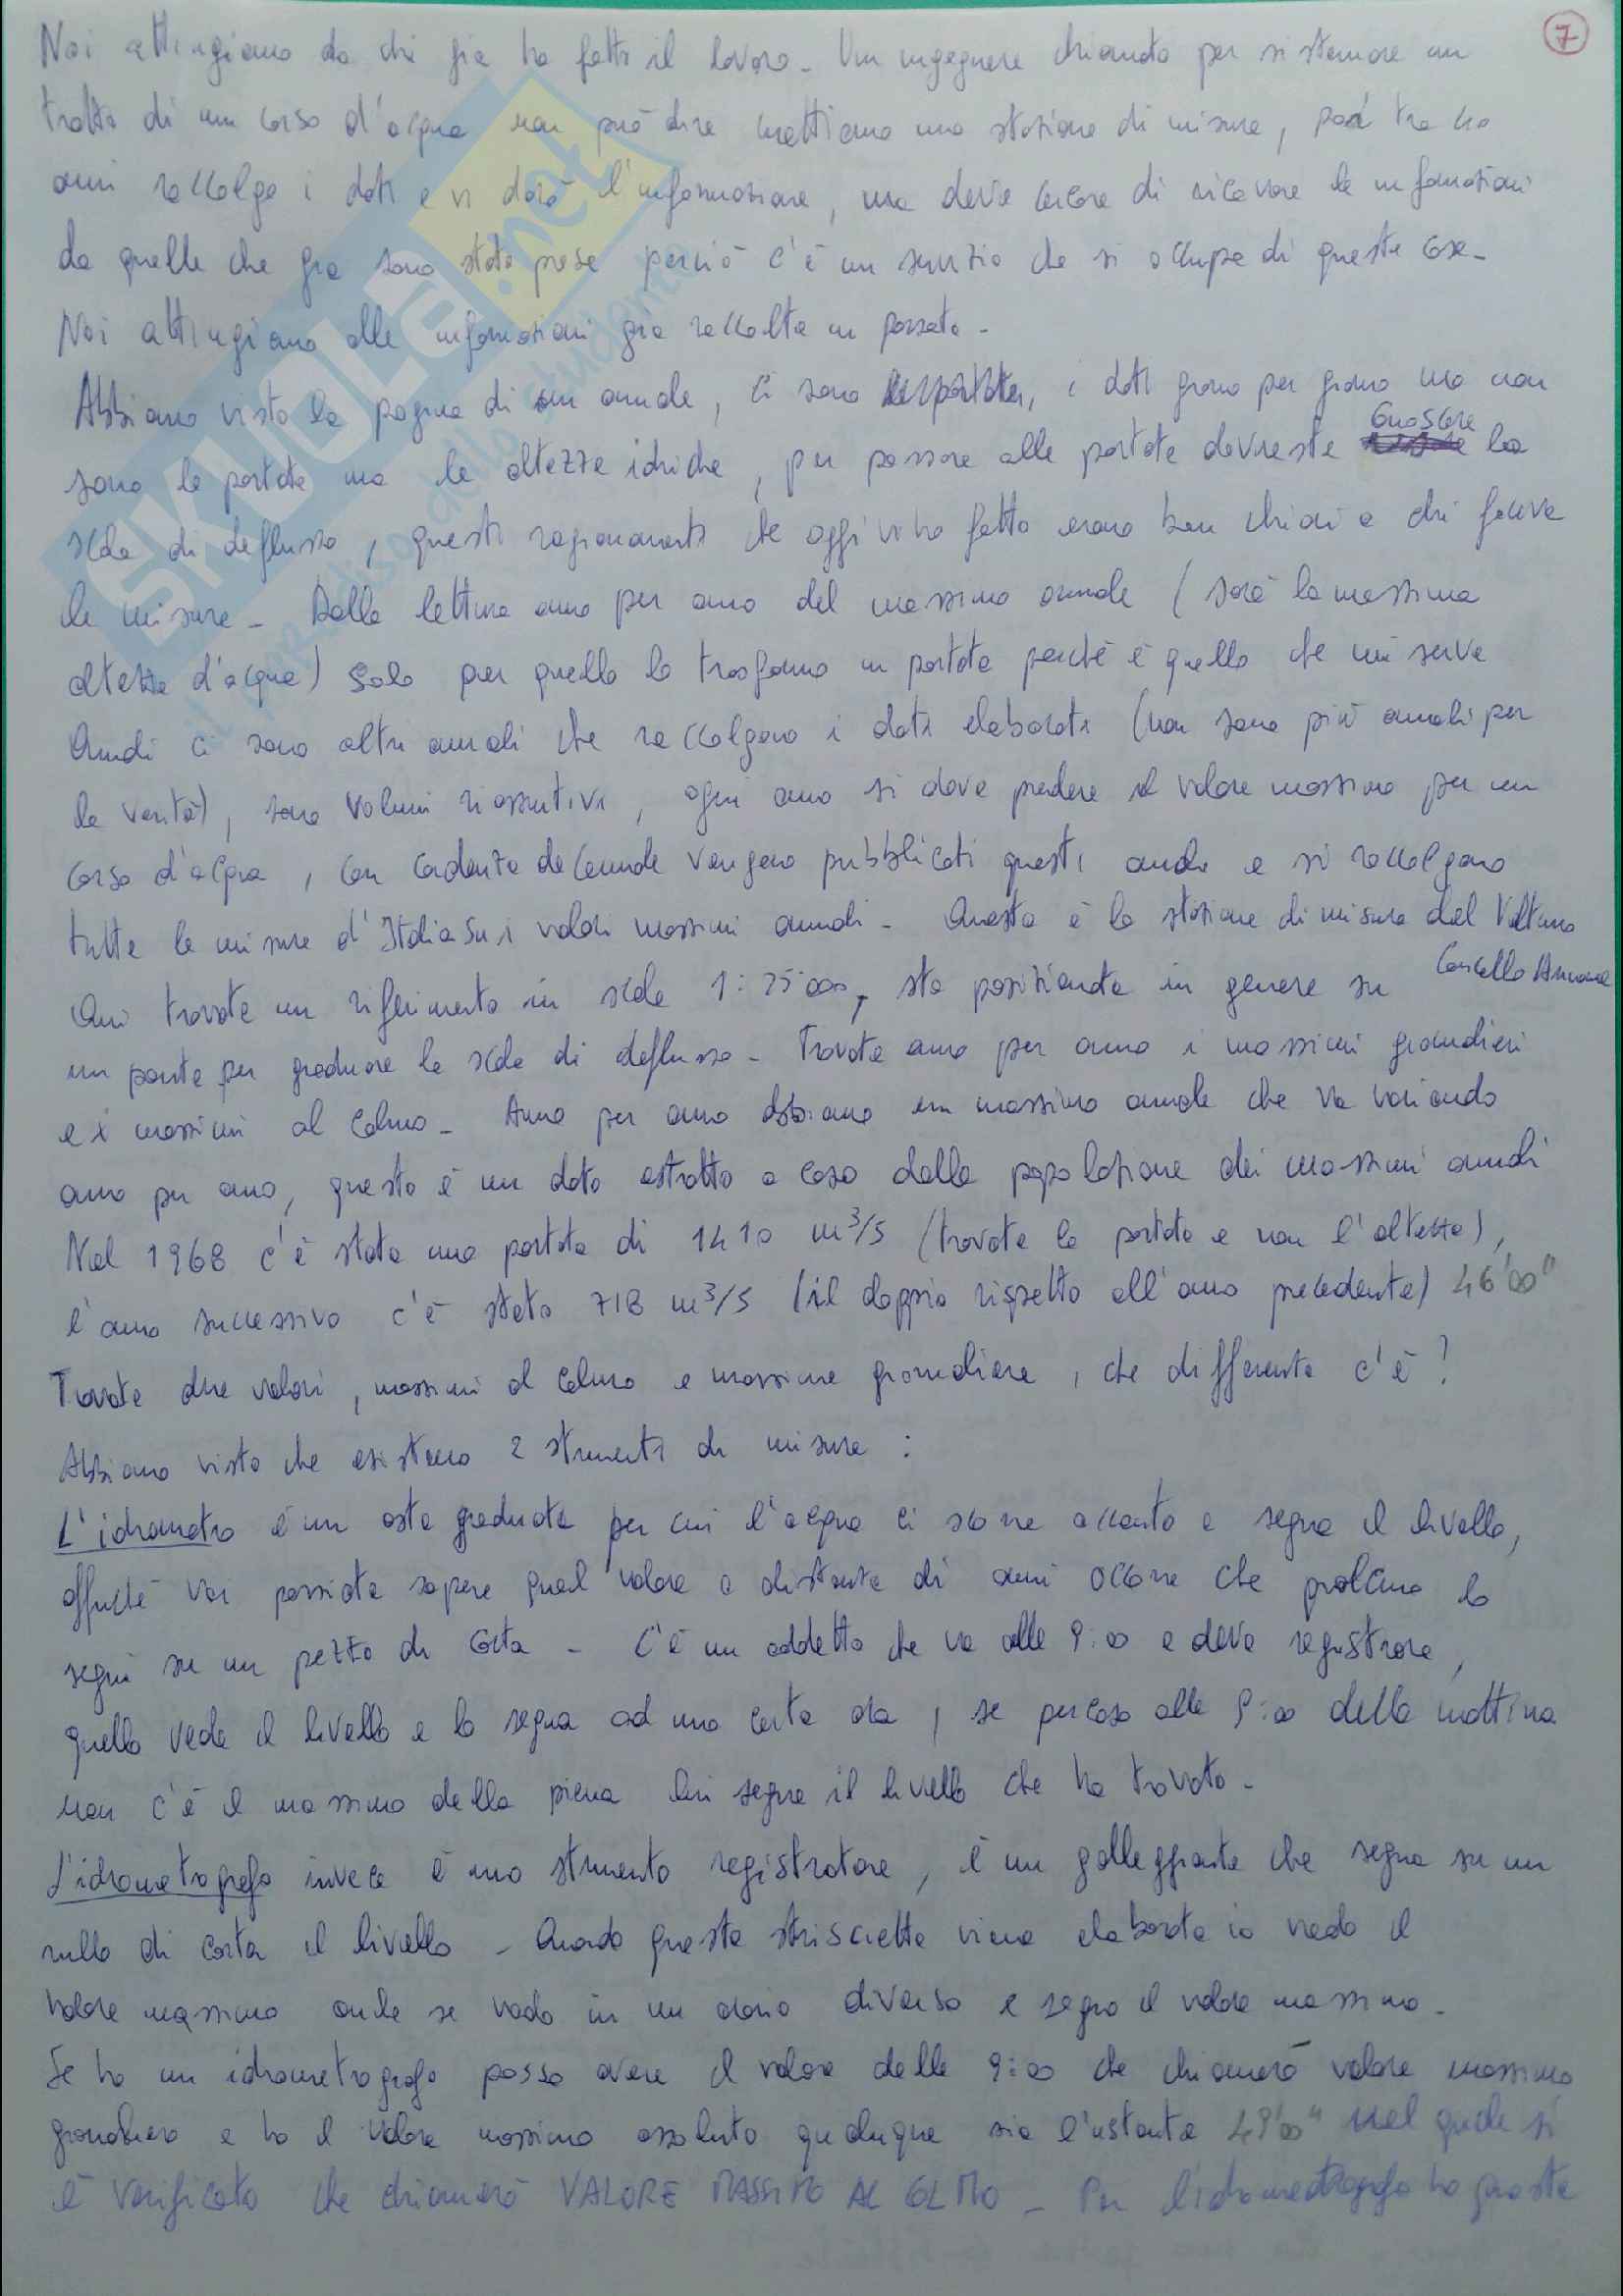 7
Noi attingiamo da chi già ha fatto il lavoro - Un ingegnere chiamato per sistemare un
tratto di un corso d'acqua non può dire mettiamo una stazione di misura, poi tra
anni raccolgo i dati e vi darò l'informazione, ma deve cercare di ricavare le informazioni
da quelle che già sono state prese perciò c'è un servizio che si occupa di queste cose -
Noi attingiamo alle informazioni già raccolte in passato -
Abbiamo visto la pagina di un annale, ci sono i dati giorno per giorno ma non
sono le portate ma le altezze idriche, per passare alle portate dovreste conoscere la
scala di deflusso, questi ragionamenti che oggi vi ho fatto erano ben chiari a chi faceva
le misure - Dalla lettura anno per anno del massimo annale (sarà la massima
altezza d'acqua) solo per quello lo trasformo in portate perché è quello che mi serve
Quindi ci sono altri annali che raccolgono i dati elaborati (non sono più annali per
la verità), sono volumi riassuntivi, ogni anno si deve prendere il valore massimo per un
corso d'acqua, con cadenza decennale vengono pubblicati questi e si raccolgono
tutte le misure d'Italia su i valori massimi annuali - Questa è la stazione di misura del Volturno
Cancello Arnone
Qui trovate un riferimento in scala 1:25000, sta posizionata in genere su
un ponte per graduare la scala di deflusso - Trovate anno per anno i massimi giornalieri
e i massimi al colmo - Anno per anno abbiamo un massimo annale che va variando
anno per anno, questo è un dato estratto a caso dalla popolazione dei massimi annuali
Nel 1968 c'è stata una portata di 1410 m³/s (trovate la portata e non l'altezza),
l'anno successivo c'è stato 718 m³/s (il doppio rispetto all'anno precedente) 46'00"
Trovate due valori, massimi al colmo e massime giornaliere, che differenza c'è?
Abbiamo visto che esistono 2 strumenti di misura :
L'idrometro è un asta graduata per cui l'acqua ci scorre accanto e segna il livello,
affinché voi possiate sapere qual valore a distanza di anni occorre che qualcuno lo
segni su un pezzo di carta - C'è un addetto che va alle 9:00 e deve registrare,
quello vede il livello e lo segna ad una certa ora, se per caso alle 9:00 della mattina
non c'è il massimo della piena lui segna il livello che ha trovato -
L'idrometrografo invece è uno strumento registratore, è un galleggiante che segna su un
rullo di carta il livello - Quando questa striscietta viene elaborata io vedo il
valore massimo anche se vado in un orario diverso e segno il valore massimo -
Se ho un idrometrografo posso avere il valore delle 9:00 che chiamerò valore massimo
giornaliero e ho il valore massimo assoluto qualunque sia l'istante 49'00" nel quale si
è verificato che chiamerò VALORE MASSIMO AL COLMO - Per l'idrometrografo ho queste
SKUOLA.net
il paradiso dello studente